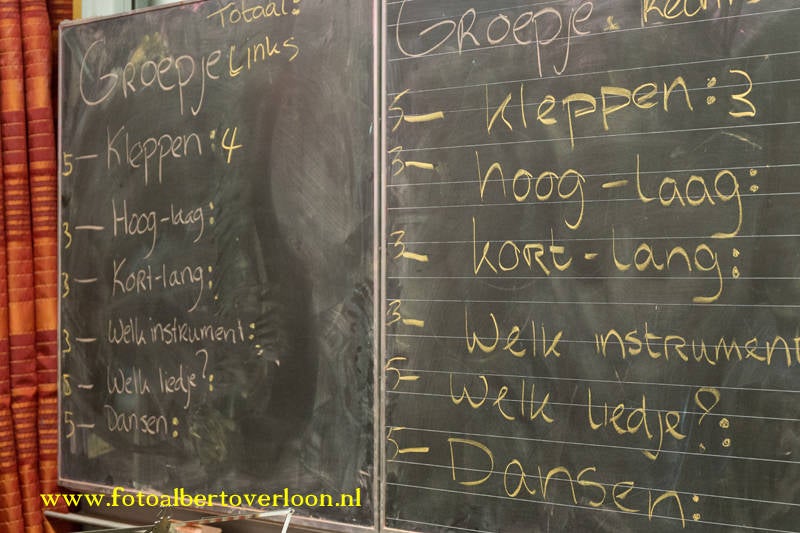 Totaal:
Groepje Links
5— Kleppen: 4
3— Hoog-laag:
3— Kort-lang:
3— Welk instrument:
5— Welk liedje?:
5— Dansen:
Groepje
5— Kleppen: 3
3— hoog-laag:
3— kort-lang:
3— Welk instrument
5— Welk liedje?:
5— Dansen:
www.fotoalbertoverloon.nl